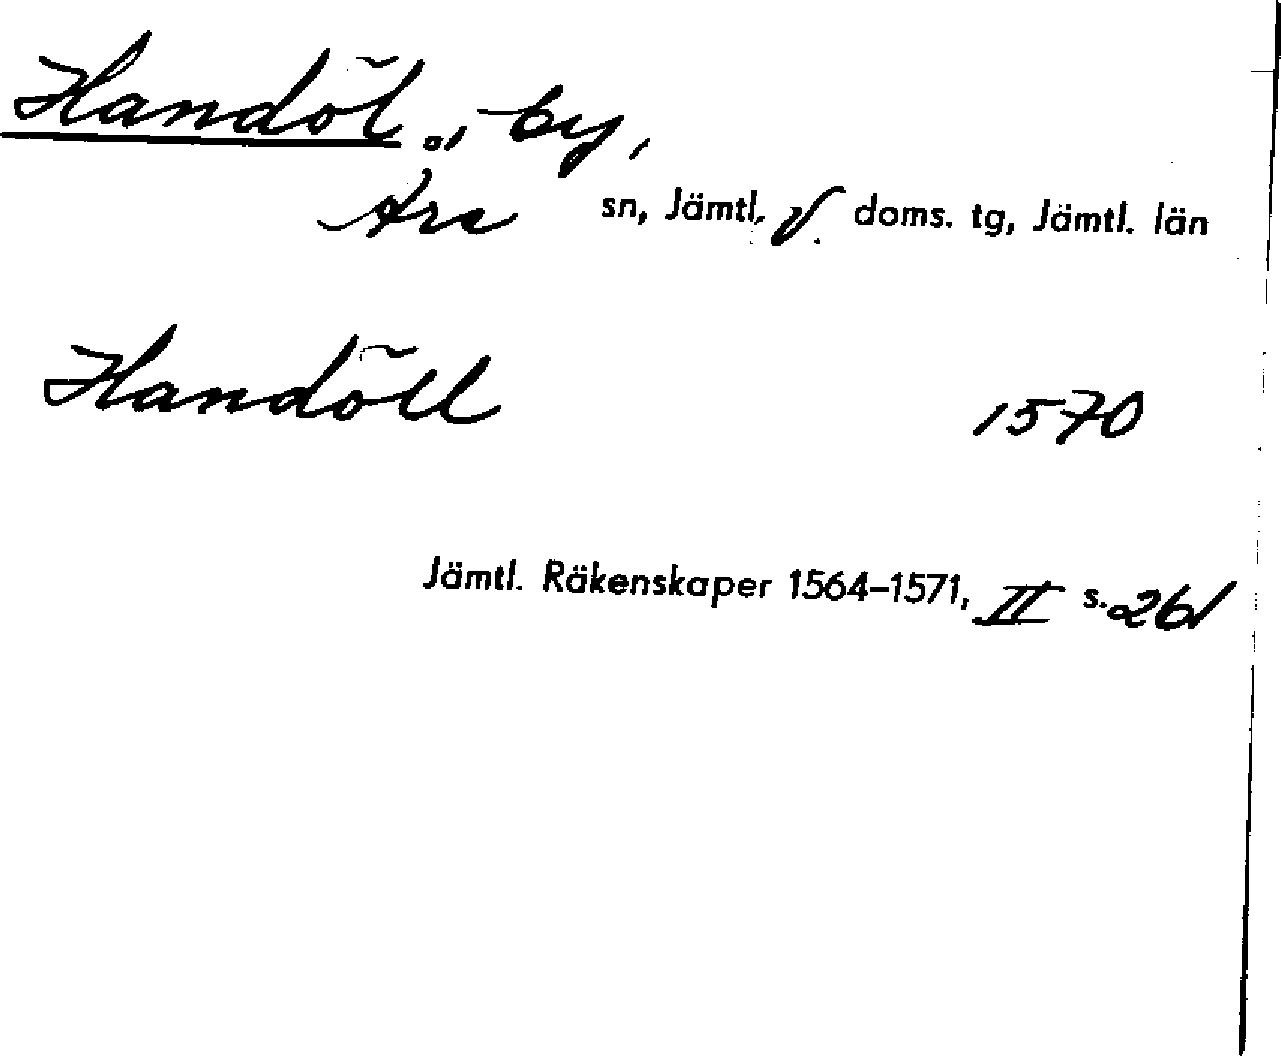 Handöl, by,
Åre sn, Jämtl. v. doms. tg, Jämtl. län
Handöll 1570
Jämtl. Räkenskaper 1564–1571, II s. 261